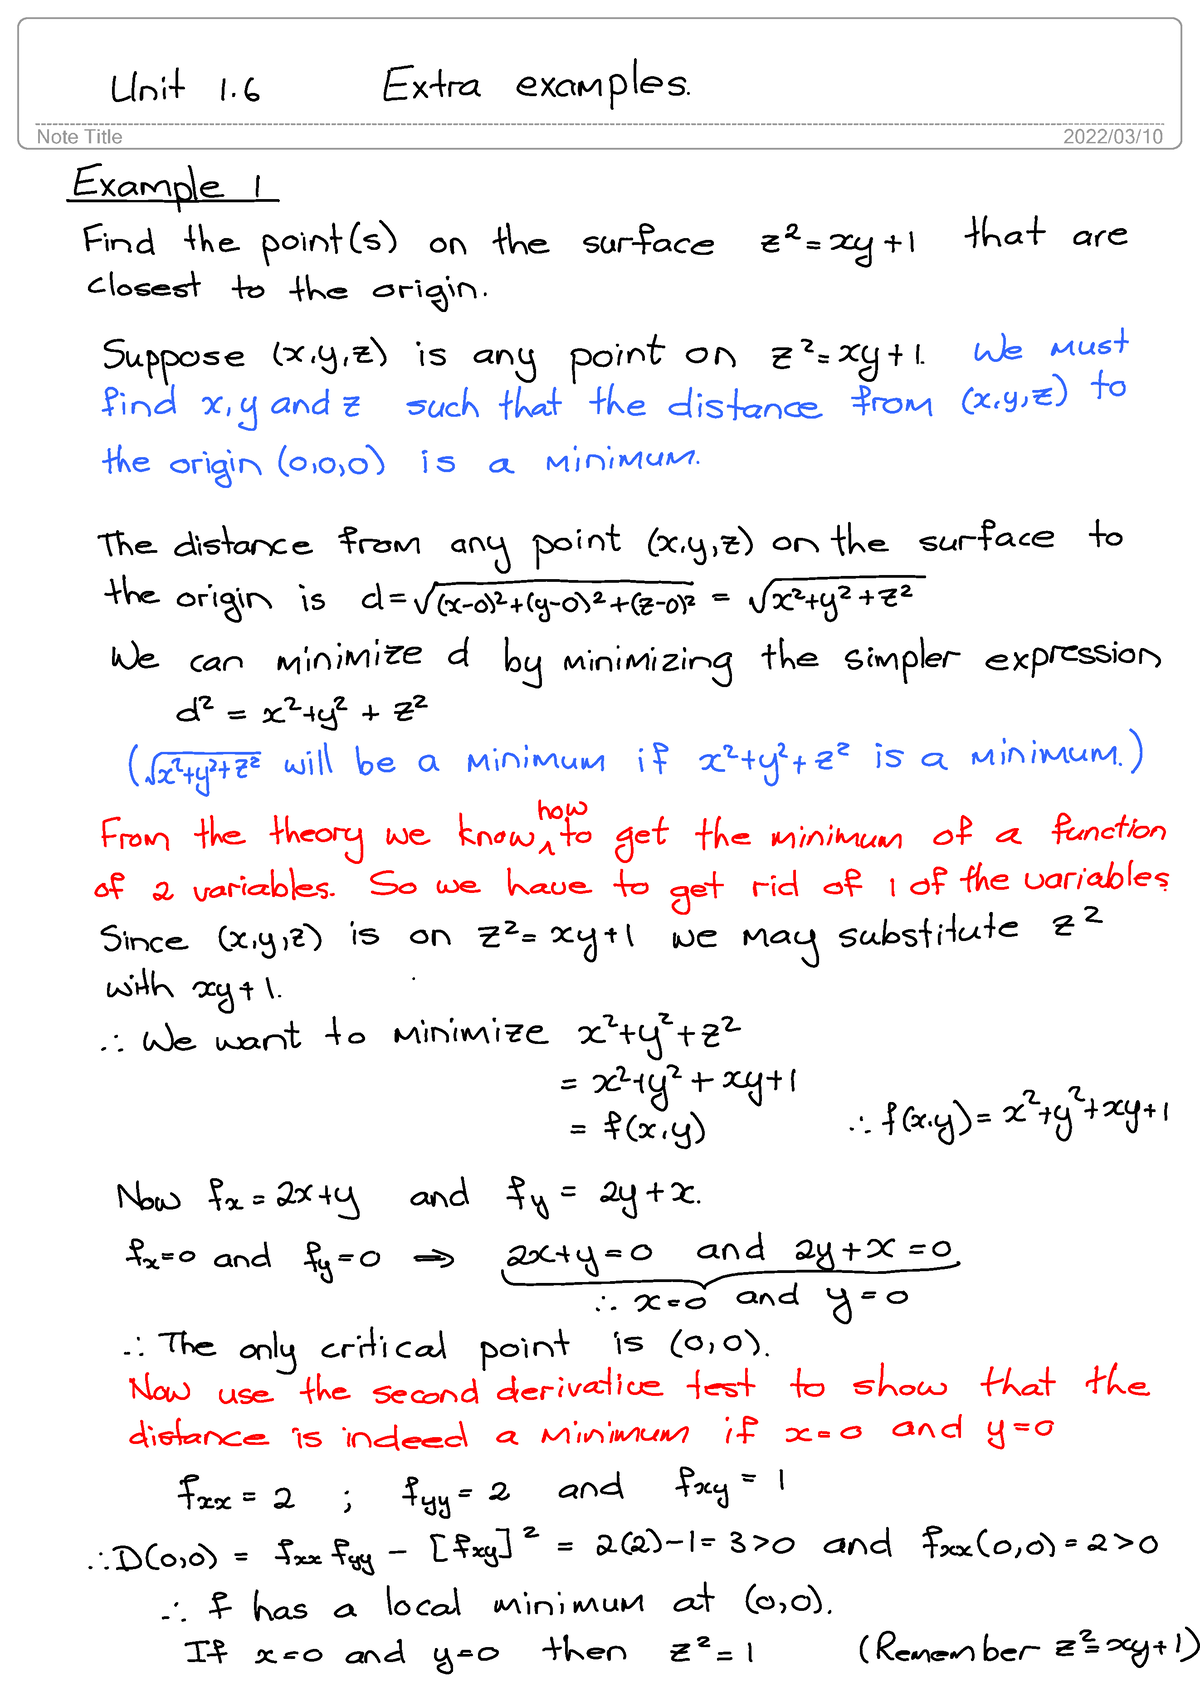 Unit 1.6 Extra examples.
Note Title 2022/03/10
Example 1
Find the point(s) on the surface z² = xy + 1 that are
closest to the origin.
Suppose (x,y,z) is any point on z² = xy + 1. We must
find x, y and z such that the distance from (x,y,z) to
the origin (0,0,0) is a minimum.
The distance from any point (x,y,z) on the surface to
the origin is d = √((x-0)² + (y-0)² + (z-0)²) = √(x² + y² + z²)
We can minimize d by minimizing the simpler expression
d² = x² + y² + z²
(√(x² + y² + z²) will be a minimum if x² + y² + z² is a minimum.)
From the theory we know how to get the minimum of a function
of 2 variables. So we have to get rid of 1 of the variables
Since (x,y,z) is on z² = xy + 1 we may substitute z²
with xy + 1.
∴ We want to minimize x² + y² + z²
= x² + y² + xy + 1
= f(x,y) ∴ f(x,y) = x² + y² + xy + 1
Now fx = 2x + y and fy = 2y + x.
fx = 0 and fy = 0 ⇒ 2x + y = 0 and 2y + x = 0
∴ x = 0 and y = 0
∴ The only critical point is (0,0).
Now use the second derivative test to show that the
distance is indeed a minimum if x = 0 and y = 0
fxx = 2 ; fyy = 2 and fxy = 1
∴ D(0,0) = fxx fyy - [fxy]² = 2(2) - 1 = 3 > 0 and fxx(0,0) = 2 > 0
∴ f has a local minimum at (0,0).
If x = 0 and y = 0 then z² = 1 (Remember z² = xy + 1)